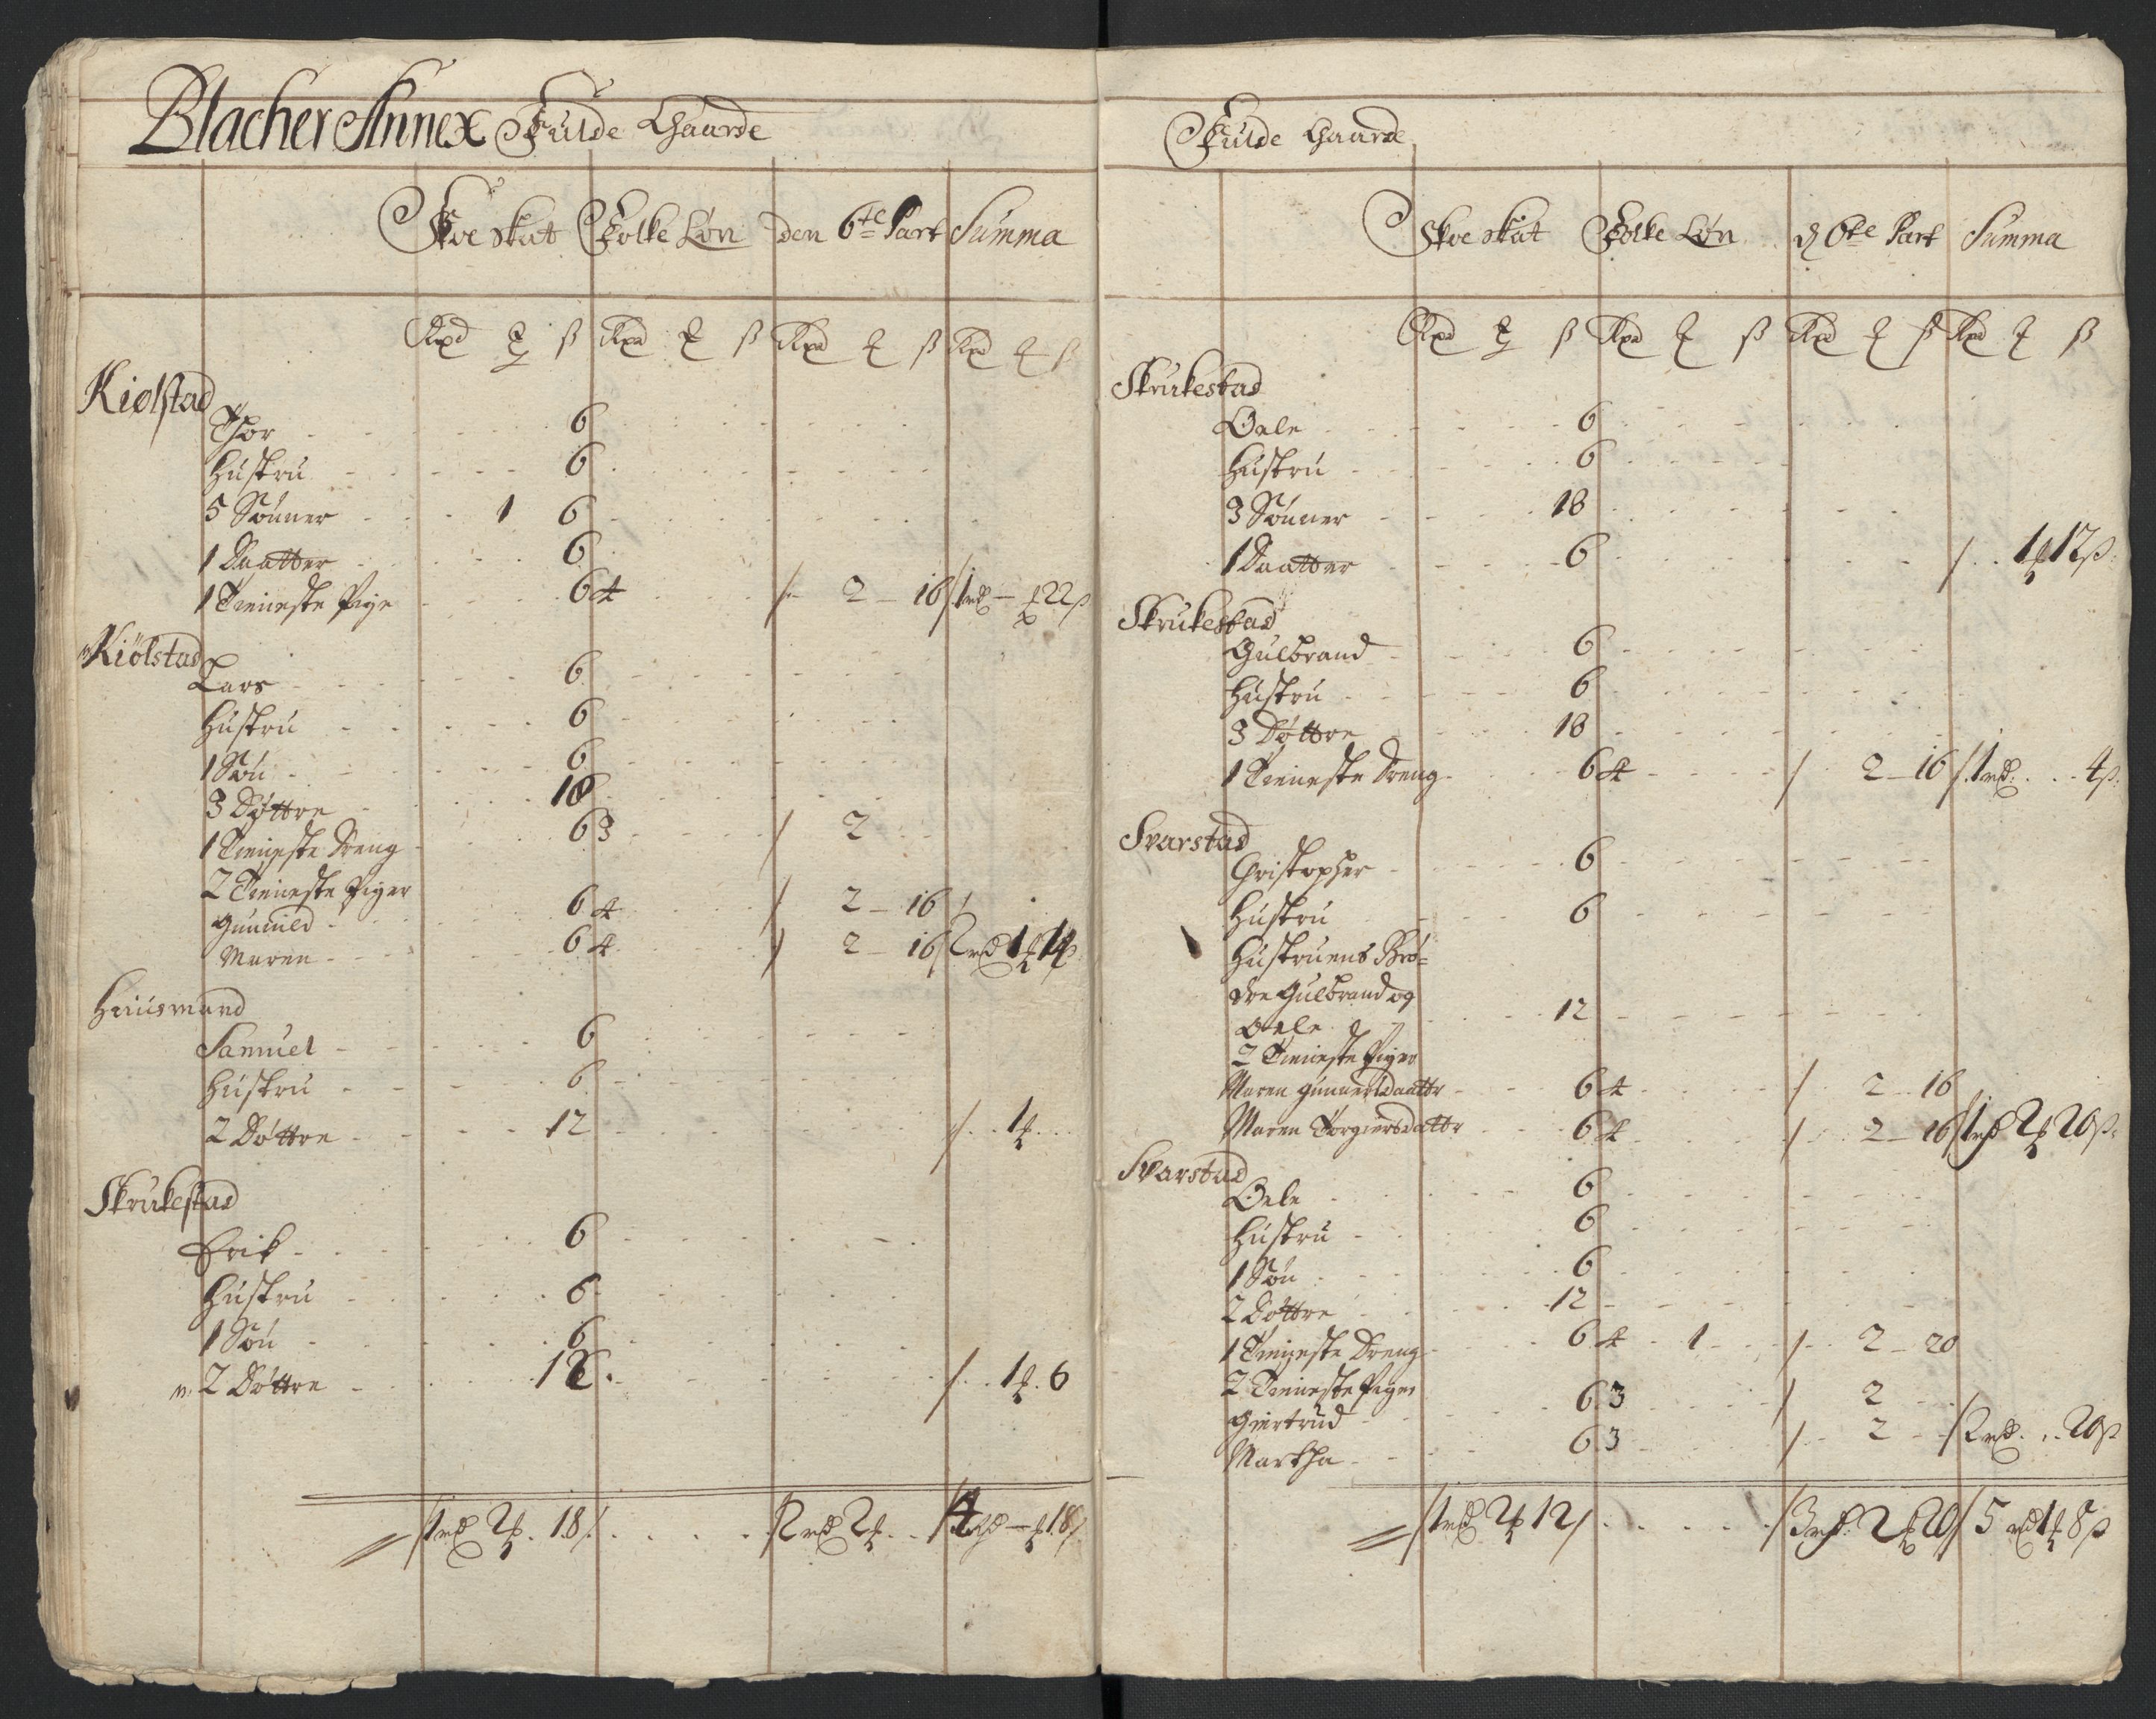 Blacher Annex Fulde Gaarde
Skoe skat Folke Løn den 6te Part Summa
Rixd ß Rixd ß Rixd ß Rixd ß
Kiølstad
Thor 6
Hustru 6
5 Sønner 1 6
1 Daatter 6
1 Tieneste Pige 6 4 2 - 16 1 rd - 22 ß
Kiølstad
Lars 6
Hustru 6
1 Søn 6
3 Døttre 18
1 Tieneste Dreng 6 3 2
2 Tieneste Piger
Gunnild 6 4 2 - 16
Maren 6 4 2 - 16 2 rd 1 14
Huusmand
Samuel 6
Hustru 6
2 Døttre 12 1
Skrukestad
Erik 6
Hustru 6
1 Søn 6
2 Døttre 12 1 6
1 rd 2 18 2 rd 2 4 rd - 18
Fulde Gaarde
Skoe skat Folke Løn d 6te Part Summa
Rixd ß Rixd ß Rixd ß Rixd ß
Skrukestad
Oele 6
Hustru 6
3 Sønner 18
1 Daatter 6 1 12 ß
Skrukestad
Gulbrand 6
Hustru 6
3 Døttre 18
1 Tieneste Dreng 6 4 2 - 16 1 rd 4 ß
Svarstad
Christopher 6
Hustru 6
Hustruens Brø-
dre Gulbrand og
Oele 12
2 Tieneste Piger
Maren Gunnersdaattr 6 4 2 - 16
Maren Torgiersdattr 6 4 2 - 16 1 rd 2 20 ß
Svarstad
Oele 6
Hustru 6
1 Søn 6
2 Døttre 12
1 Tieneste Dreng 6 4 1 2 - 20
2 Tieneste Piger
Giertrud 6 3 2
Martha 6 3 2 2 rd 20 ß
1 rd 2 12 3 rd 2 20 5 rd 1 8 ß